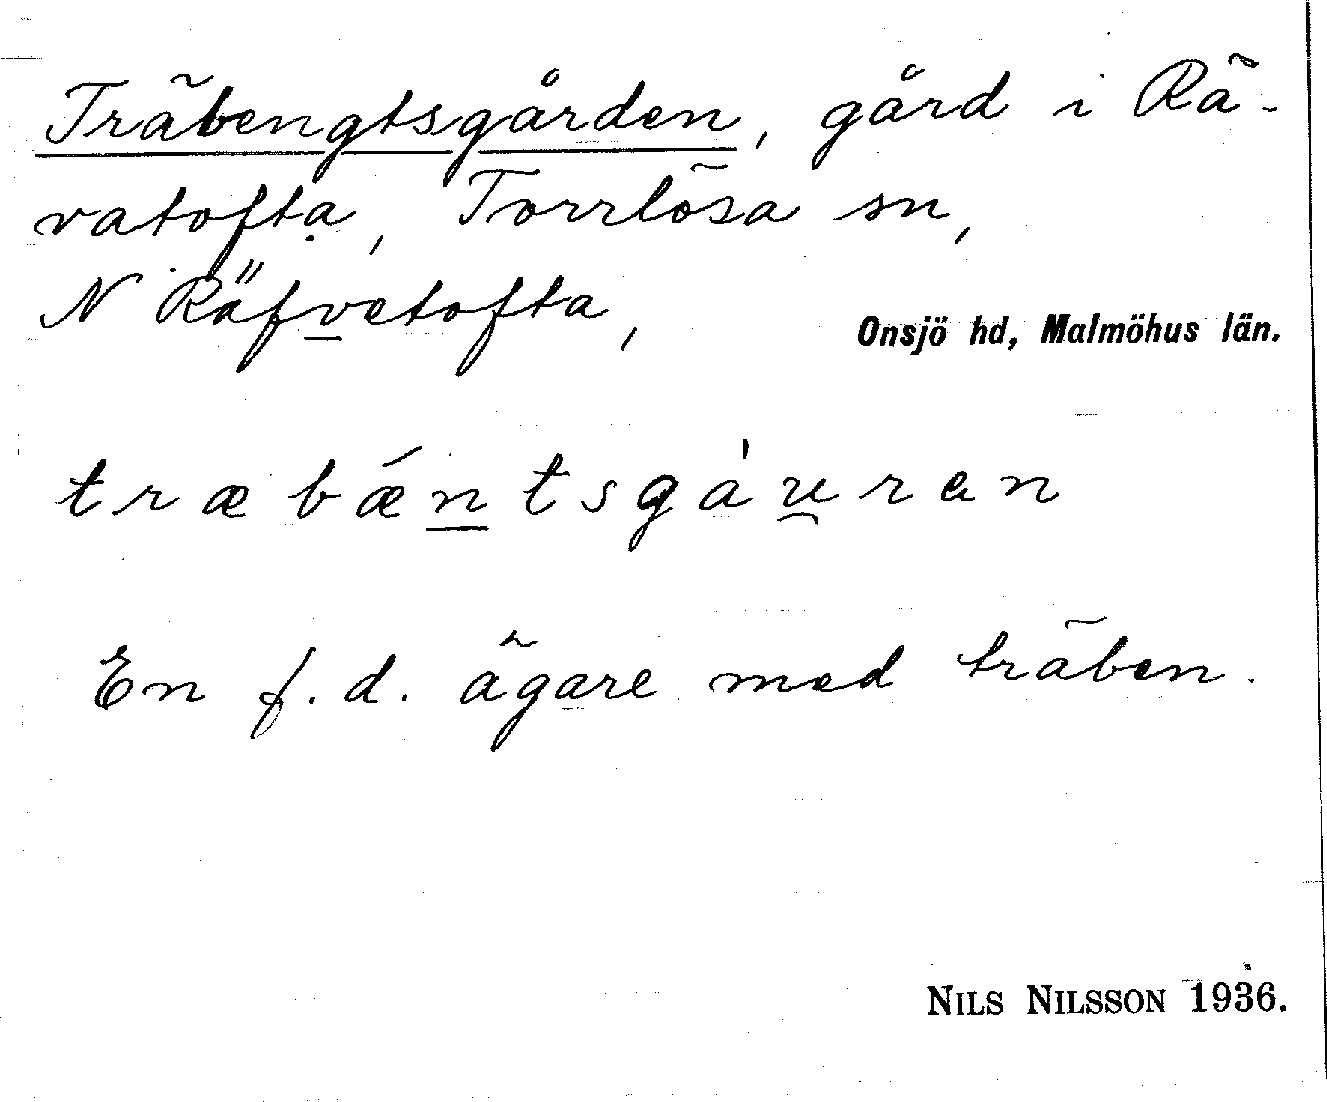 Träbengtsgården, gård i Rä-
vatofta, Torrlösa sn,
N Räfvetofta,
Onsjö hd, Malmöhus län.
træbǽntsgàu̯ren
En f.d. ägare med träben.
NILS NILSSON 1936.